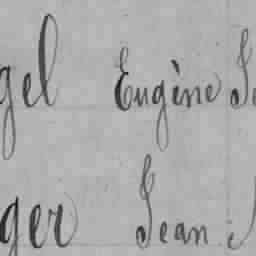 gel Eugène
ger Jean